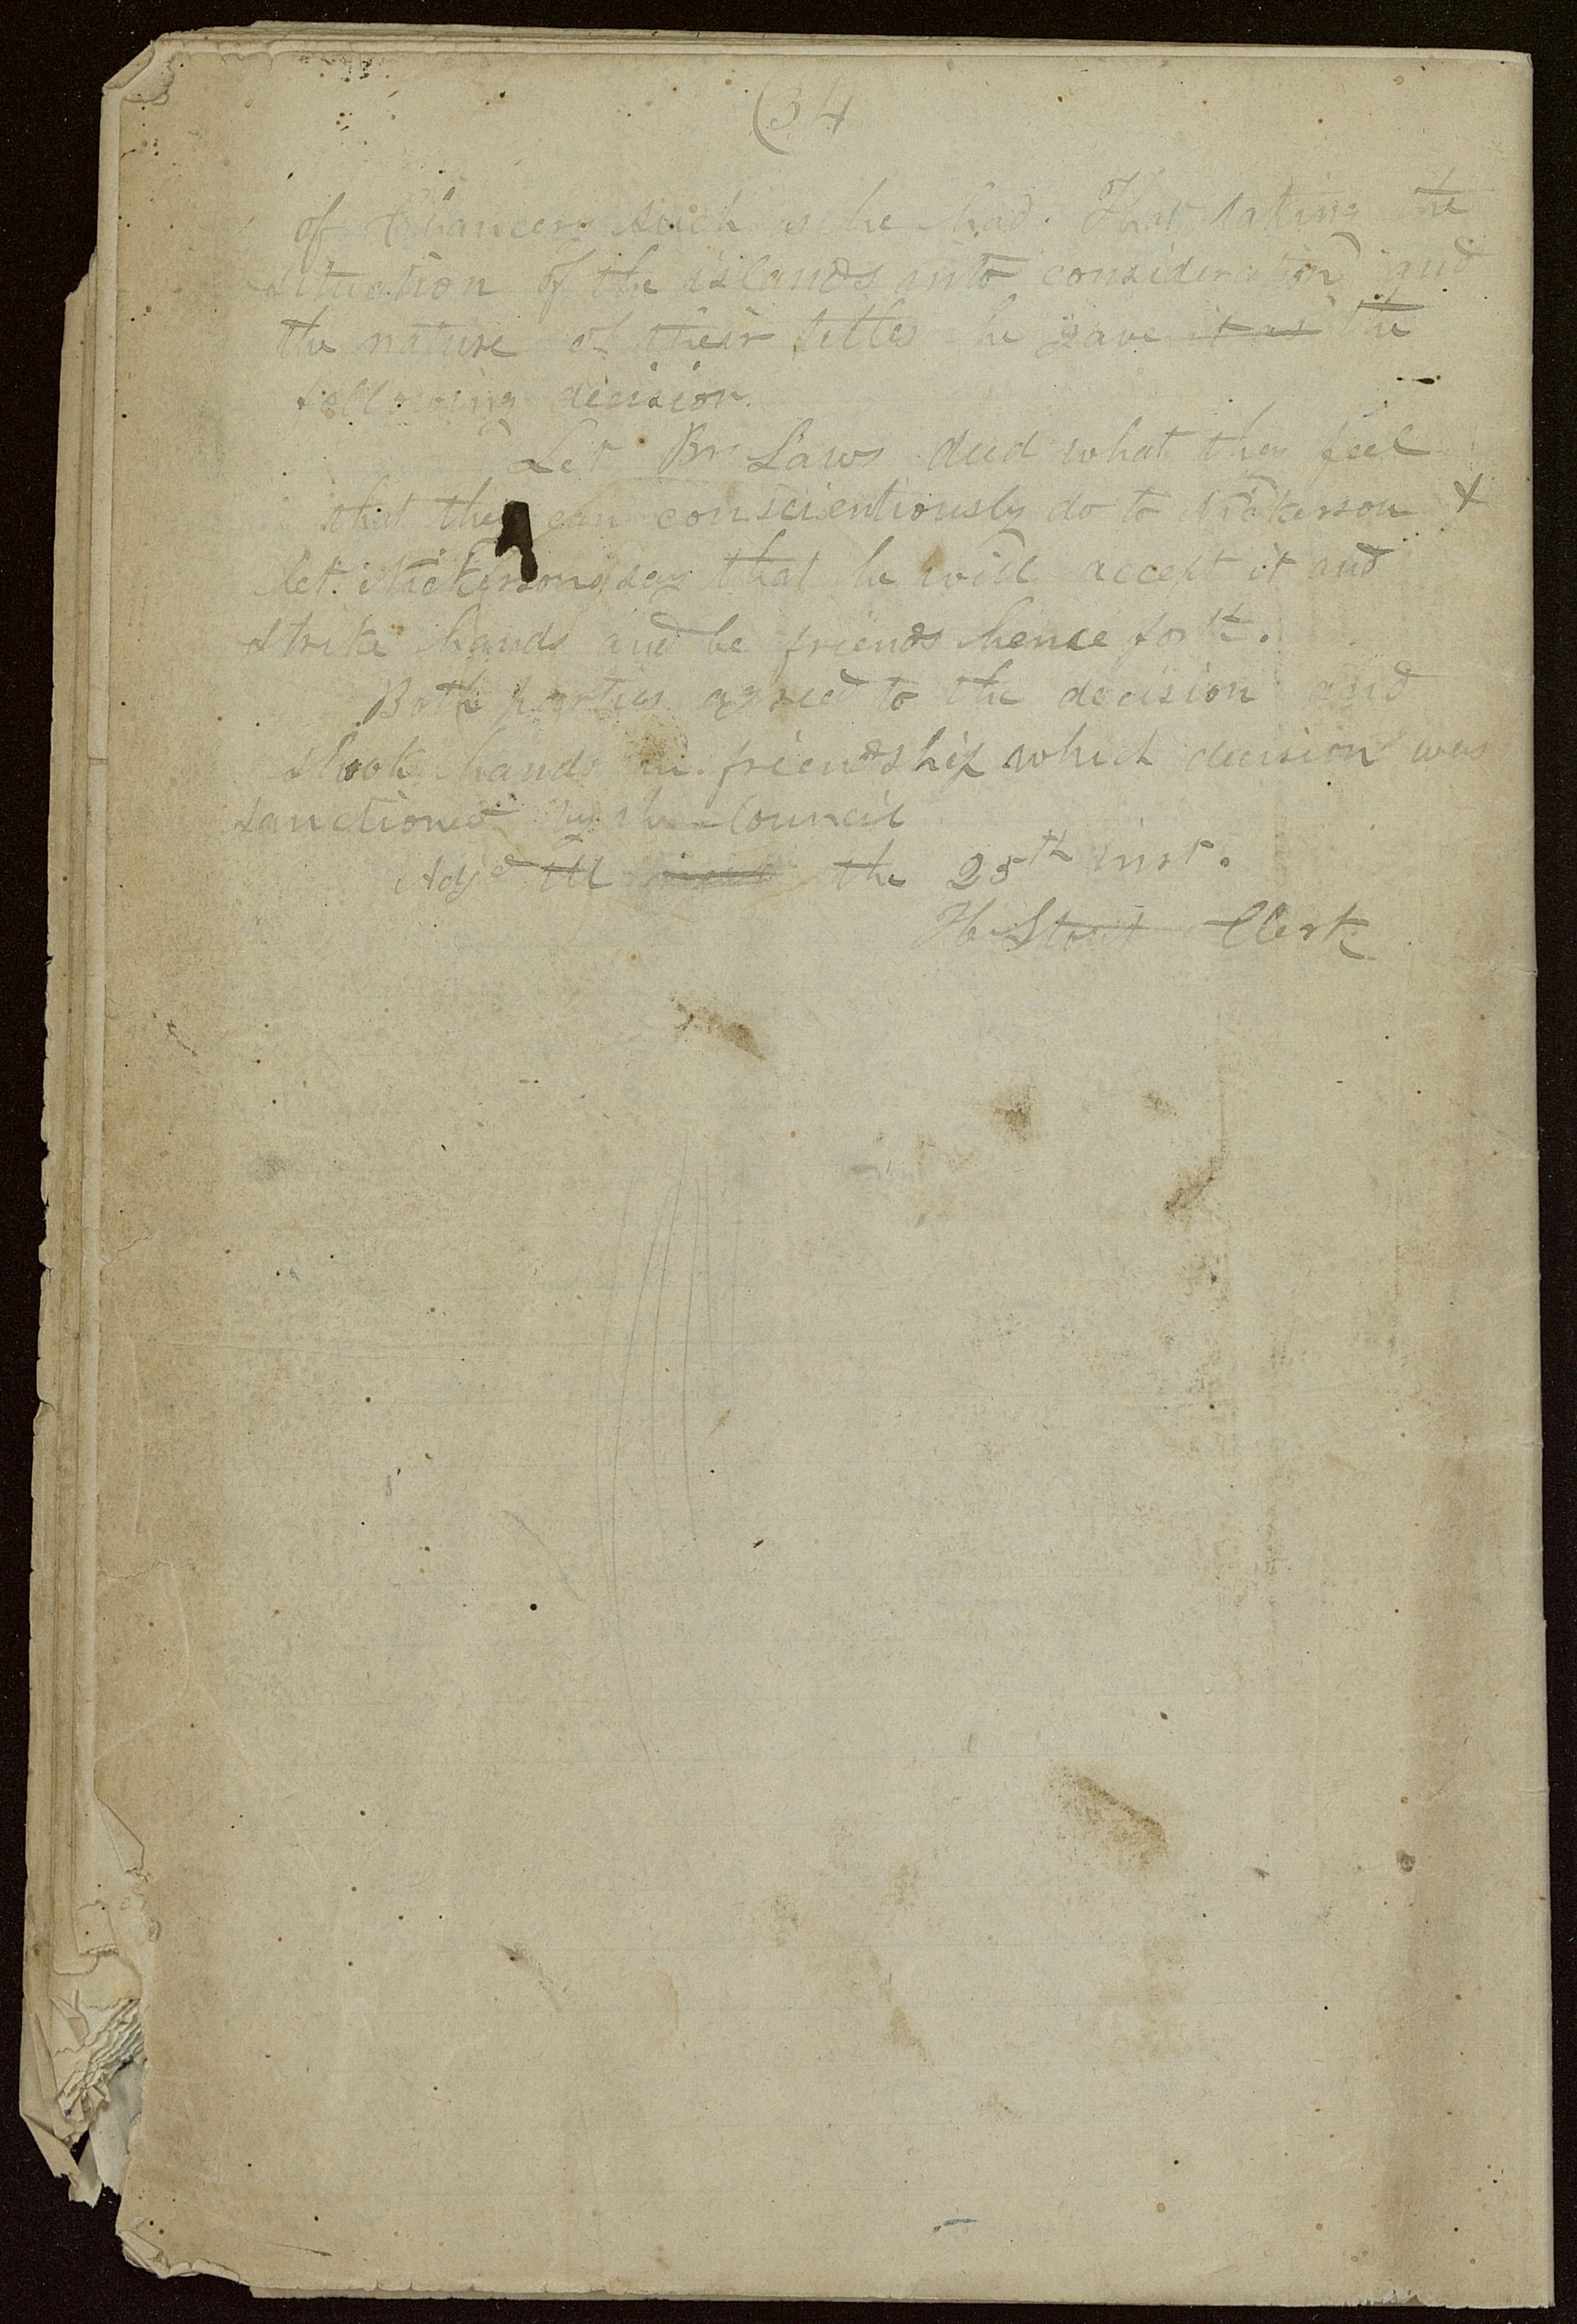 (34
of Chancery such as he had. That taking the
situation of the islands into consideration and
the nature of their titles he gave it as the
following decision.
Let Br Laws deed what they feel
that they can conscientiously do to Nickerson &
let Nickerson say that he will accept it and
strike hands and be friends hence forth.
Both parties agreed to the decision and
shook hands in friendship which decision was
sanctioned by the Council
Adjd till the 25th inst.
H. Stout Clerk